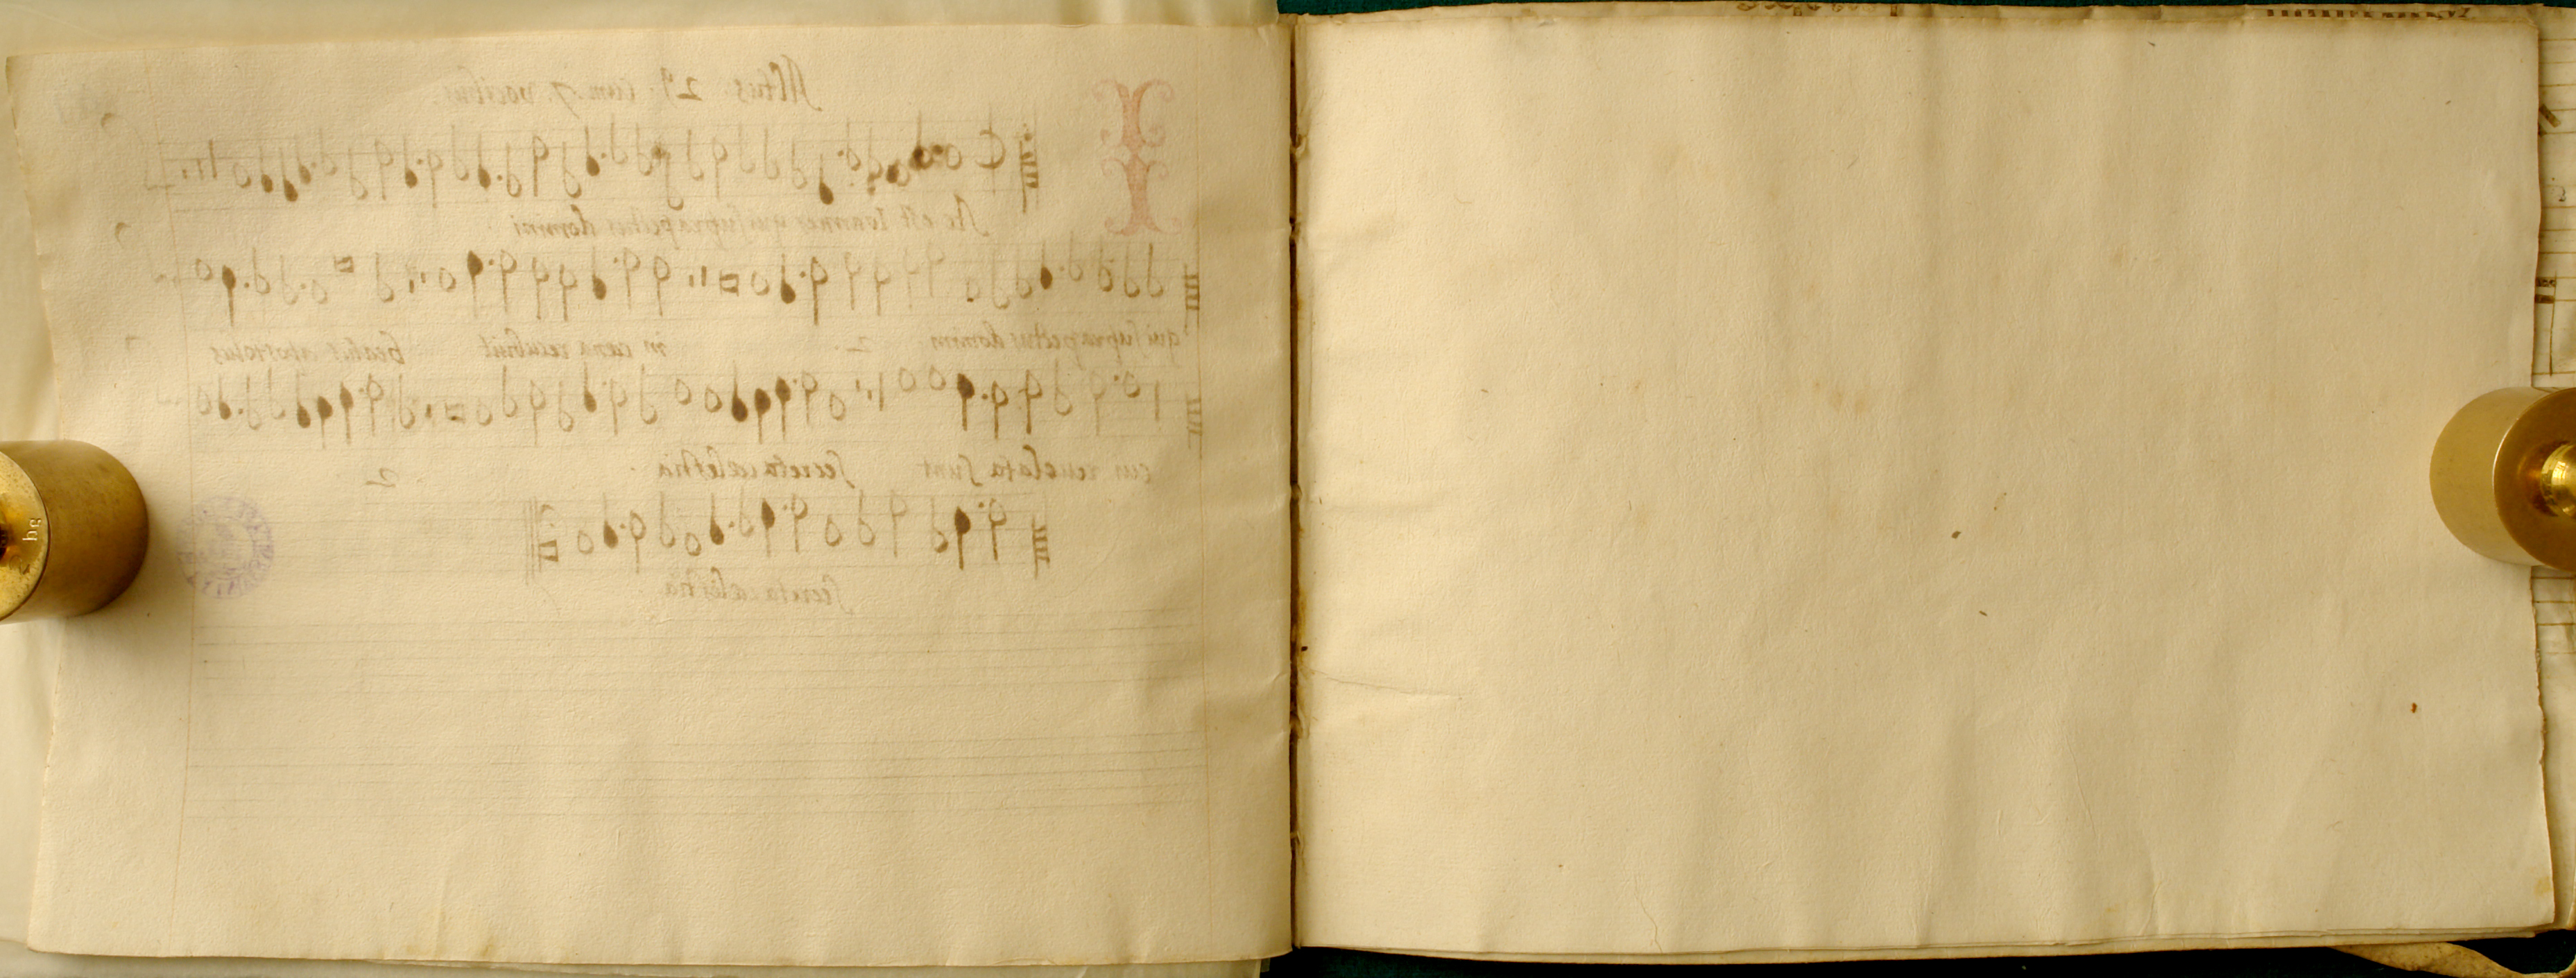 Altus 2us cum 7. vocibus.
I
Ste est Ioannes qui supra pectus domini
qui supra pectus domini 2. in cæna recubuit beatus apostolus
cui reuelata sunt secreta cælestia . 2
secreta cælestia